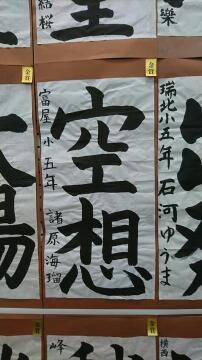 金賞
空想
富屋小五年 諸原海瑠
金賞
瑞北小五年 石河ゆうま
陽
金賞
金賞
峰
横西
結桜